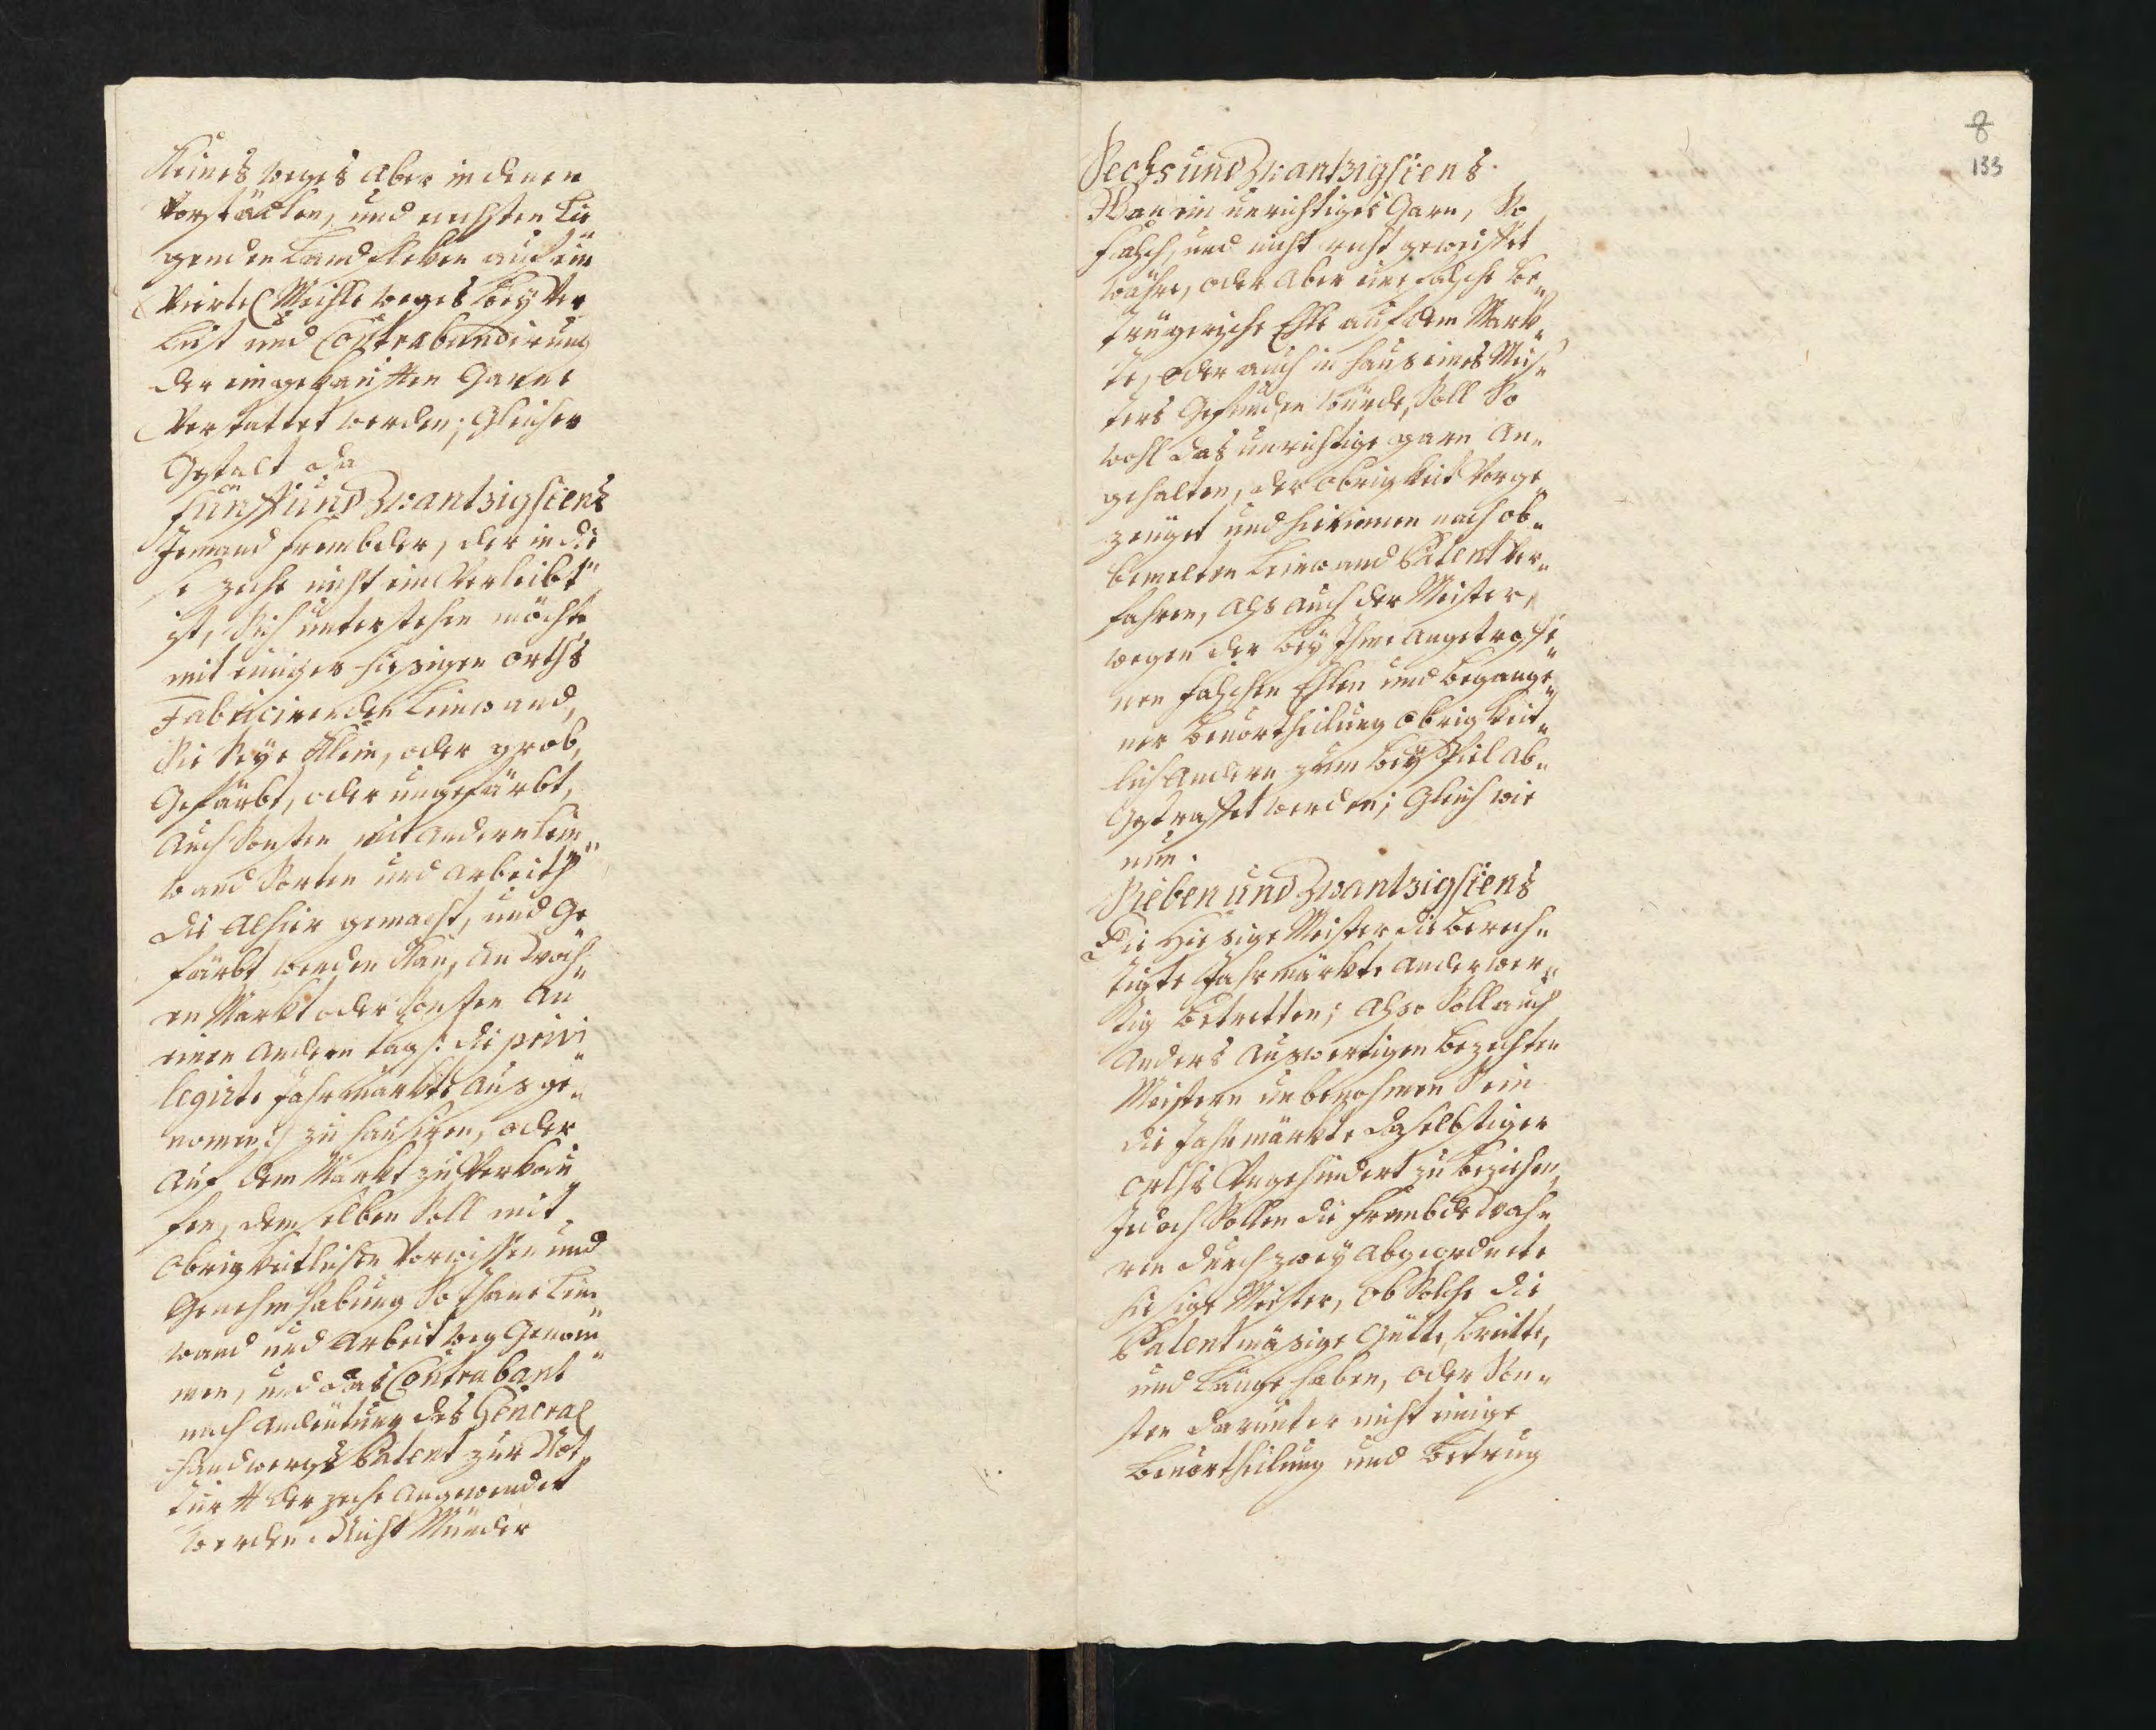 Keines weges aber in denen
Vorstädten, und nechsten lie„
genden Landstrken auf ein
Viertel Meihle weges bey Ver„
lust und Contrabandirung
der eingekaufften Garne
Verstattet werden; Gleicher
Gestalt da
Fünffund Zwantzigstens
Jemand frembder, der in die„
se zeche nicht einVerleibt
ist, Sich unterstehen möchte
mit einiger hiesigen orths
Fabricirenden Leinwand,
Sie Seye klein, oder grob,
Gefärbt, oder ungefärbt,
Auch Sonsten mit andern Lein„
wand Sorten und arbeith
die alhier gemacht, und Ge„
färbt werden Kan, an Woch„
en Markt oder Sonsten an
einen andern tag /: die privi„
legirte Jahrmärkte ausge„
nomen :/ zu hausiren, oder
auf dem Markt zu Verkau„
fen, demselben Soll mit
Obrigkeitlichen Vorwissen und
Genehmhabung Sothane Lein„
wand und Arbeit weg Genom„
men, und das Contrabant
nach andeutung des General
Handwergs Patent zur Noth„
durfft der zeche angewendet
werden. Nicht Münder
8
133
Sechsund Zwantzigstens.
Wan ein unrichtiges Garn, So
falsch, und nicht recht geweiffet
währe, oder aber eine falsche be„
trügerische Ehle auf dem Mark„
te, oder auch in haus eines Meis„
ters Gefunden würde, Soll So
wohl das unrichtige garn an„
gehalten, der obrigkeit Vorge„
zeuget und hierinnen nach ob„
bemelten Leinwand Patent Ver„
fahren, alß auch der Meister,
wegen der bey Ihme angetroffe„
nen falschen Ehlen und begange„
ner beVortheilung obrigkeit„
lich andern zum beySpiel ab„
Gestraffet werden; Gleich wie
nun.
Sieben und Zwantzigstens
Die Hiesige Meister die berech„
tigte Jahrmärkte anderwer„
tig betretten; alßo Soll auch
anders auswertigen bezechten
Meistern unbenohmen Sein
die Jahrmärkte daselbstiger
orths Vngehindert zu beziehen,
Jedoch Sollen die frembde Wah„
ren durch zwey abgeordnete
hiesige Meister, ob Solche die
Patentmäsige Gütte, breitte,
und Länge haben, oder Son„
sten darunter nicht einige
beVortheilung und betrug